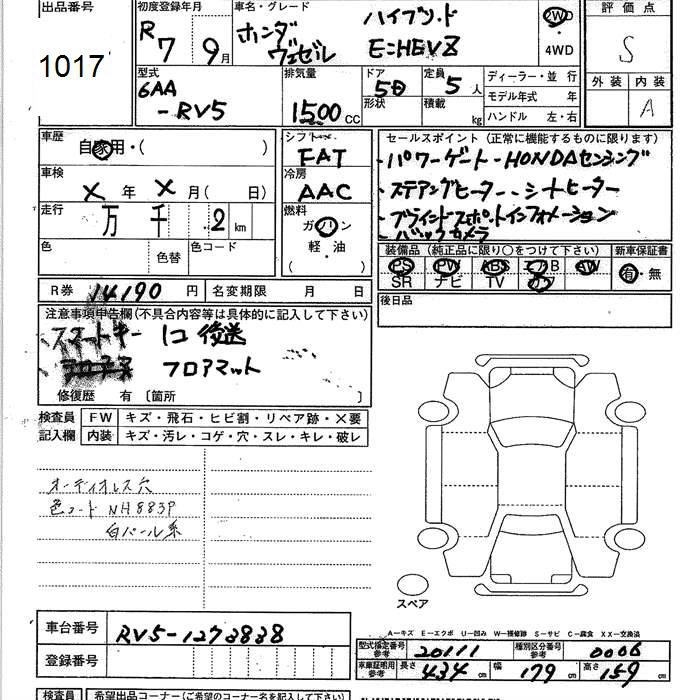 出品番号 初度登録年月 車名・グレード 評価点
1017 R7 9月 ホンダ ヴェゼル ハイブリッド e:HEVZ 2WD・4WD S
型式 排気量 ドア 定員 ディーラー・並行 外装 内装
6AA-RV5 1500cc 5D 形状 5人 積載 kg モデル年式 年 ハンドル 左・右 A
車歴 自家用・( ) シフト FAT セールスポイント(正常に機能するものに限ります)
車検 X年X月( 日) 冷房 AAC
・パワーゲート・HONDAセンシング
・ステアリングヒーター・シートヒーター
・ブラインドスポットインフォメーション
・バックカメラ
走行 万 千 .2km 燃料 ガソリン 軽・油 ( )
色 色替 色コード
装備品(純正品に限り○をつけて下さい) 新車保証書
PS PW ABS エアB AW 有・無
SR ナビ TV カワ
R券 14,190円 名変期限 月 日
後日品
注意事項申告欄(不具合内容等は具体的に記入して下さい)
スマートキー 1コ後送
フロアマット
修復歴 有〔箇所
検査員 FW キズ・飛石・ヒビ割・リペア跡・X要
記入欄 内装 キズ・汚レ・コゲ・穴・スレ・キレ・破レ
オーディオレス穴
色コード NH883P
白パール系
スペア
A—キズ E—エクボ U—凹み W—補修跡 S—サビ C—腐食 XX—交換済
車台番号 RV5-1273838
登録番号
型式指定番号 参考 20111 種別区分番号 参考 0006
車庫証明用 参考 長さ 434cm 幅 179cm 高さ 159cm
検査員 希望出品コーナー(ご希望のコーナー名を記入して下さい)